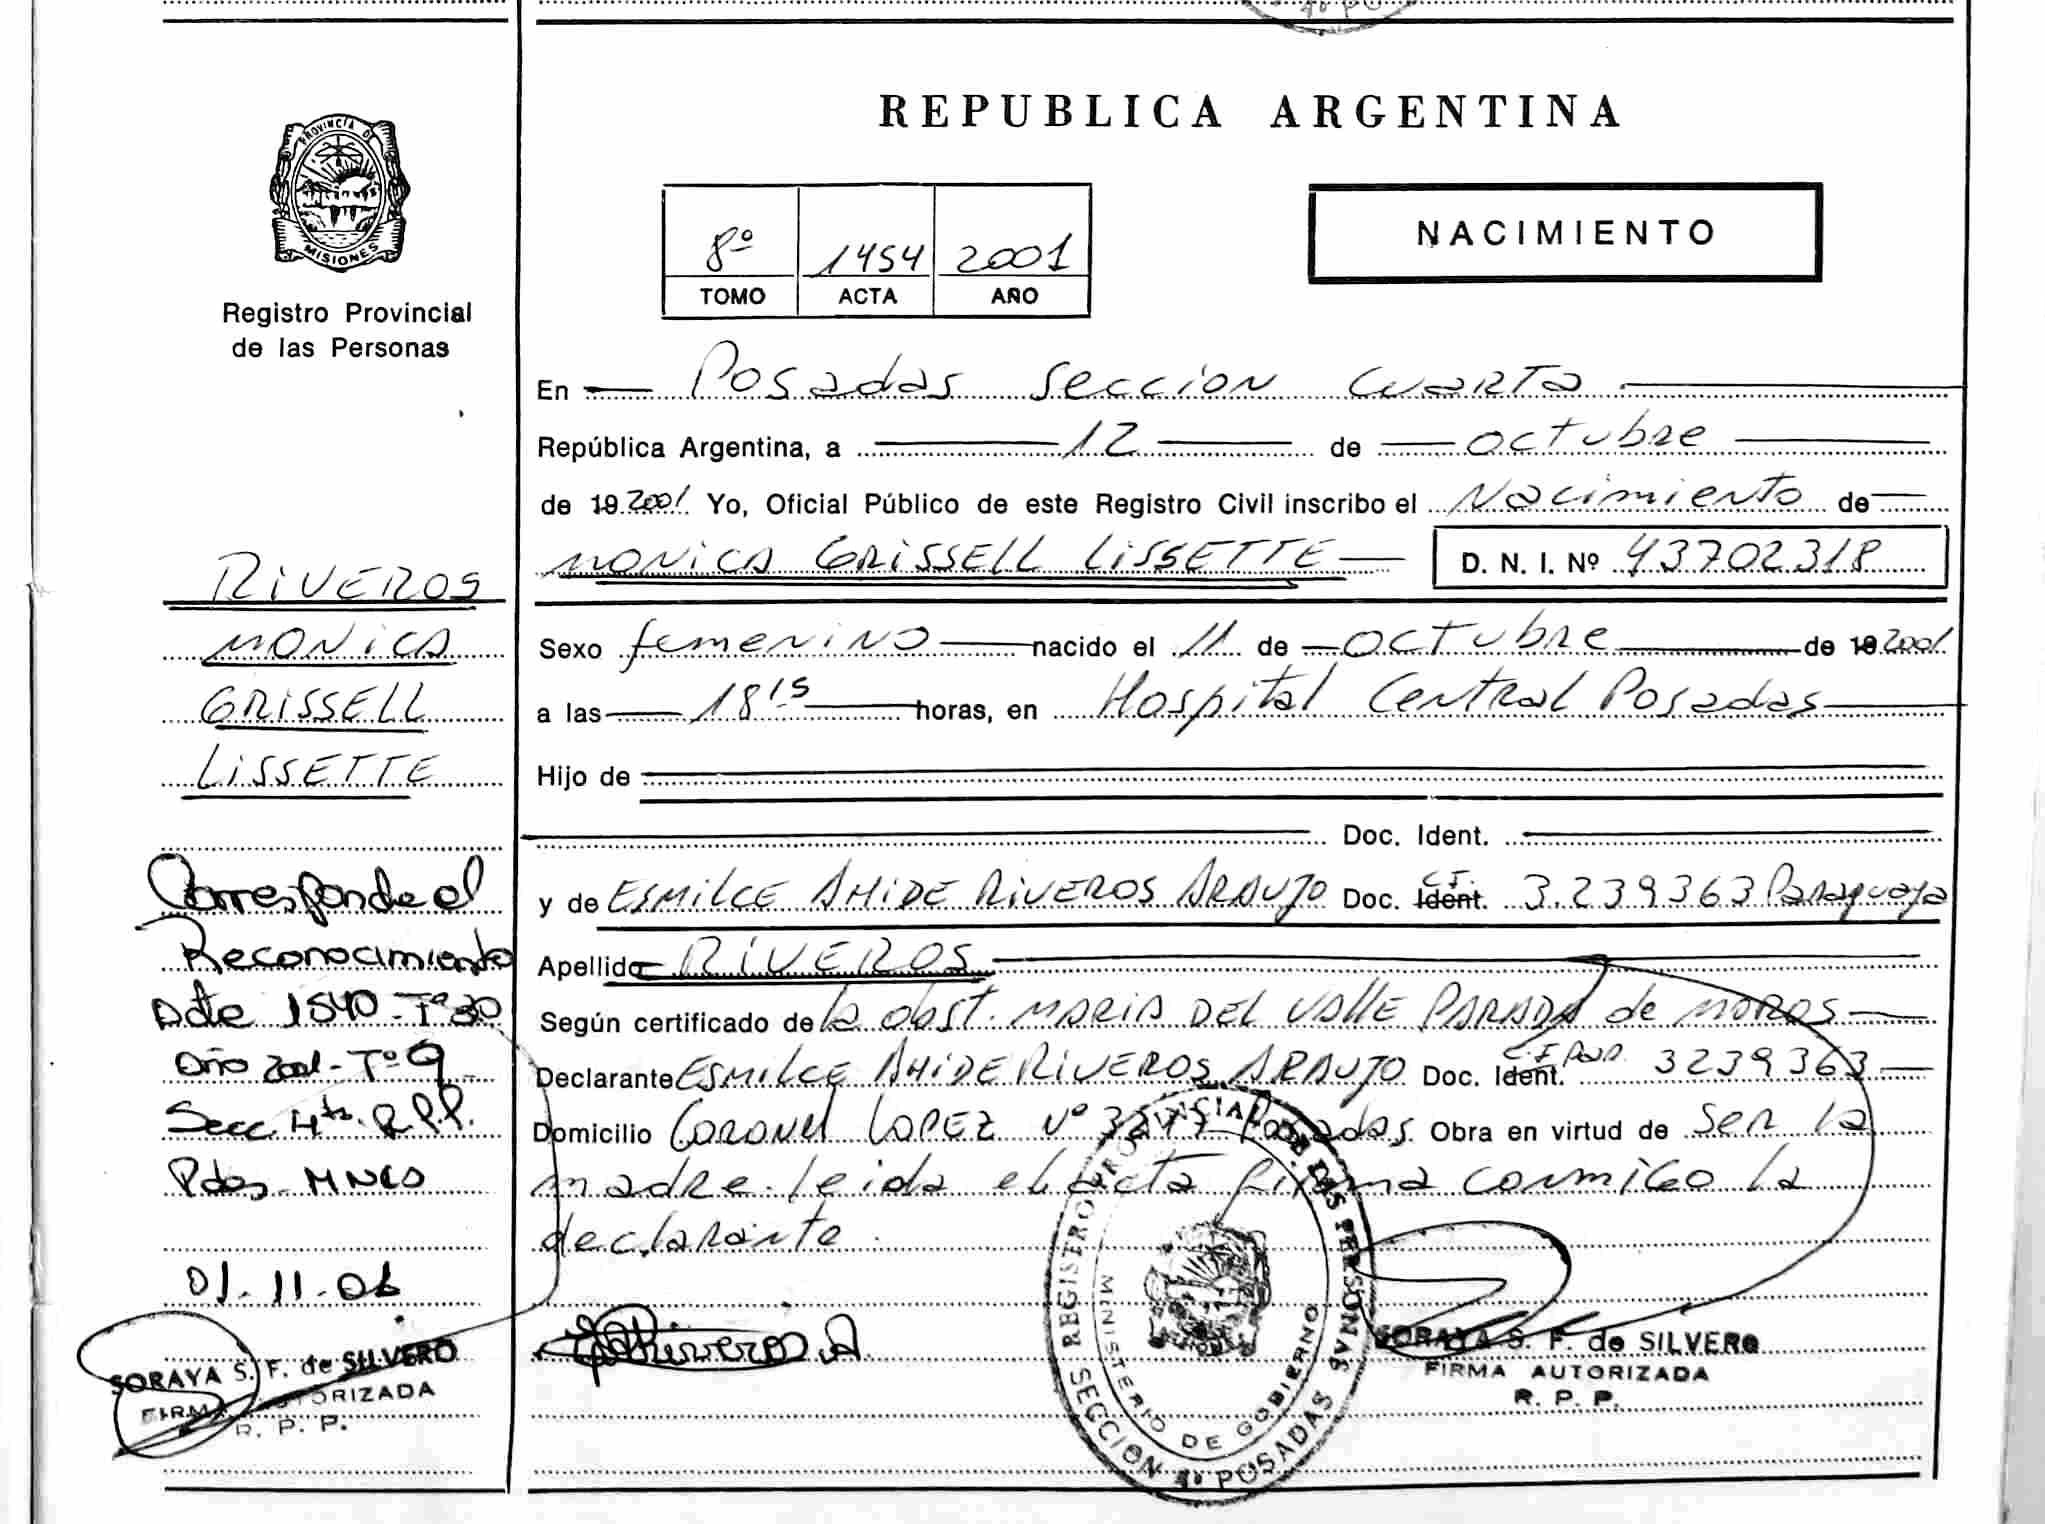 PROVINCIA DE
MISIONES
Registro Provincial
de las Personas
RIVEROS
MONICA
GRISSELL
LISSETTE
Corresponde al
Reconocimiento
Acta 1540-Tº30
Año 2001-Tº9
Secc. 4ta. R.P.P.
Pdas-MNES
01.11.06
SORAYA S. F. de SILVERO
FIRMA AUTORIZADA
R. P. P.
REPUBLICA ARGENTINA
8º 1454 2001
TOMO ACTA AÑO
NACIMIENTO
En Posadas Seccion Cuarta
República Argentina, a 12 de octubre
de 19 2001 Yo, Oficial Público de este Registro Civil inscribo el Nacimiento de
MONICA GRISSELL LISSETTE D. N. I. Nº 43702318
Sexo femenino nacido el 11 de octubre de 19 2001
a las 18 15 horas, en Hospital Central Posadas
Hijo de
Doc. Ident.
y de ESMILCE AHIDE RIVEROS ARAUJO Doc. Ident. C.I. 3.239363 Paraguaya
Apellido RIVEROS
Según certificado de la obst. MARIA DEL VALLE PARADA de MOROS
Declarante ESMILCE AHIDE RIVEROS ARAUJO Doc. Ident. C.I. 3239363
Domicilio CORONEL LOPEZ Nº Posadas. Obra en virtud de ser la
madre. leida el acta firma conmigo la
declarante.
Riveros A.
REGISTRO PROVINCIAL DE LAS PERSONAS
SECCION 4ª POSADAS
MINISTERIO DE GOBIERNO
SORAYA S. F. de SILVERO
FIRMA AUTORIZADA
R. P. P.